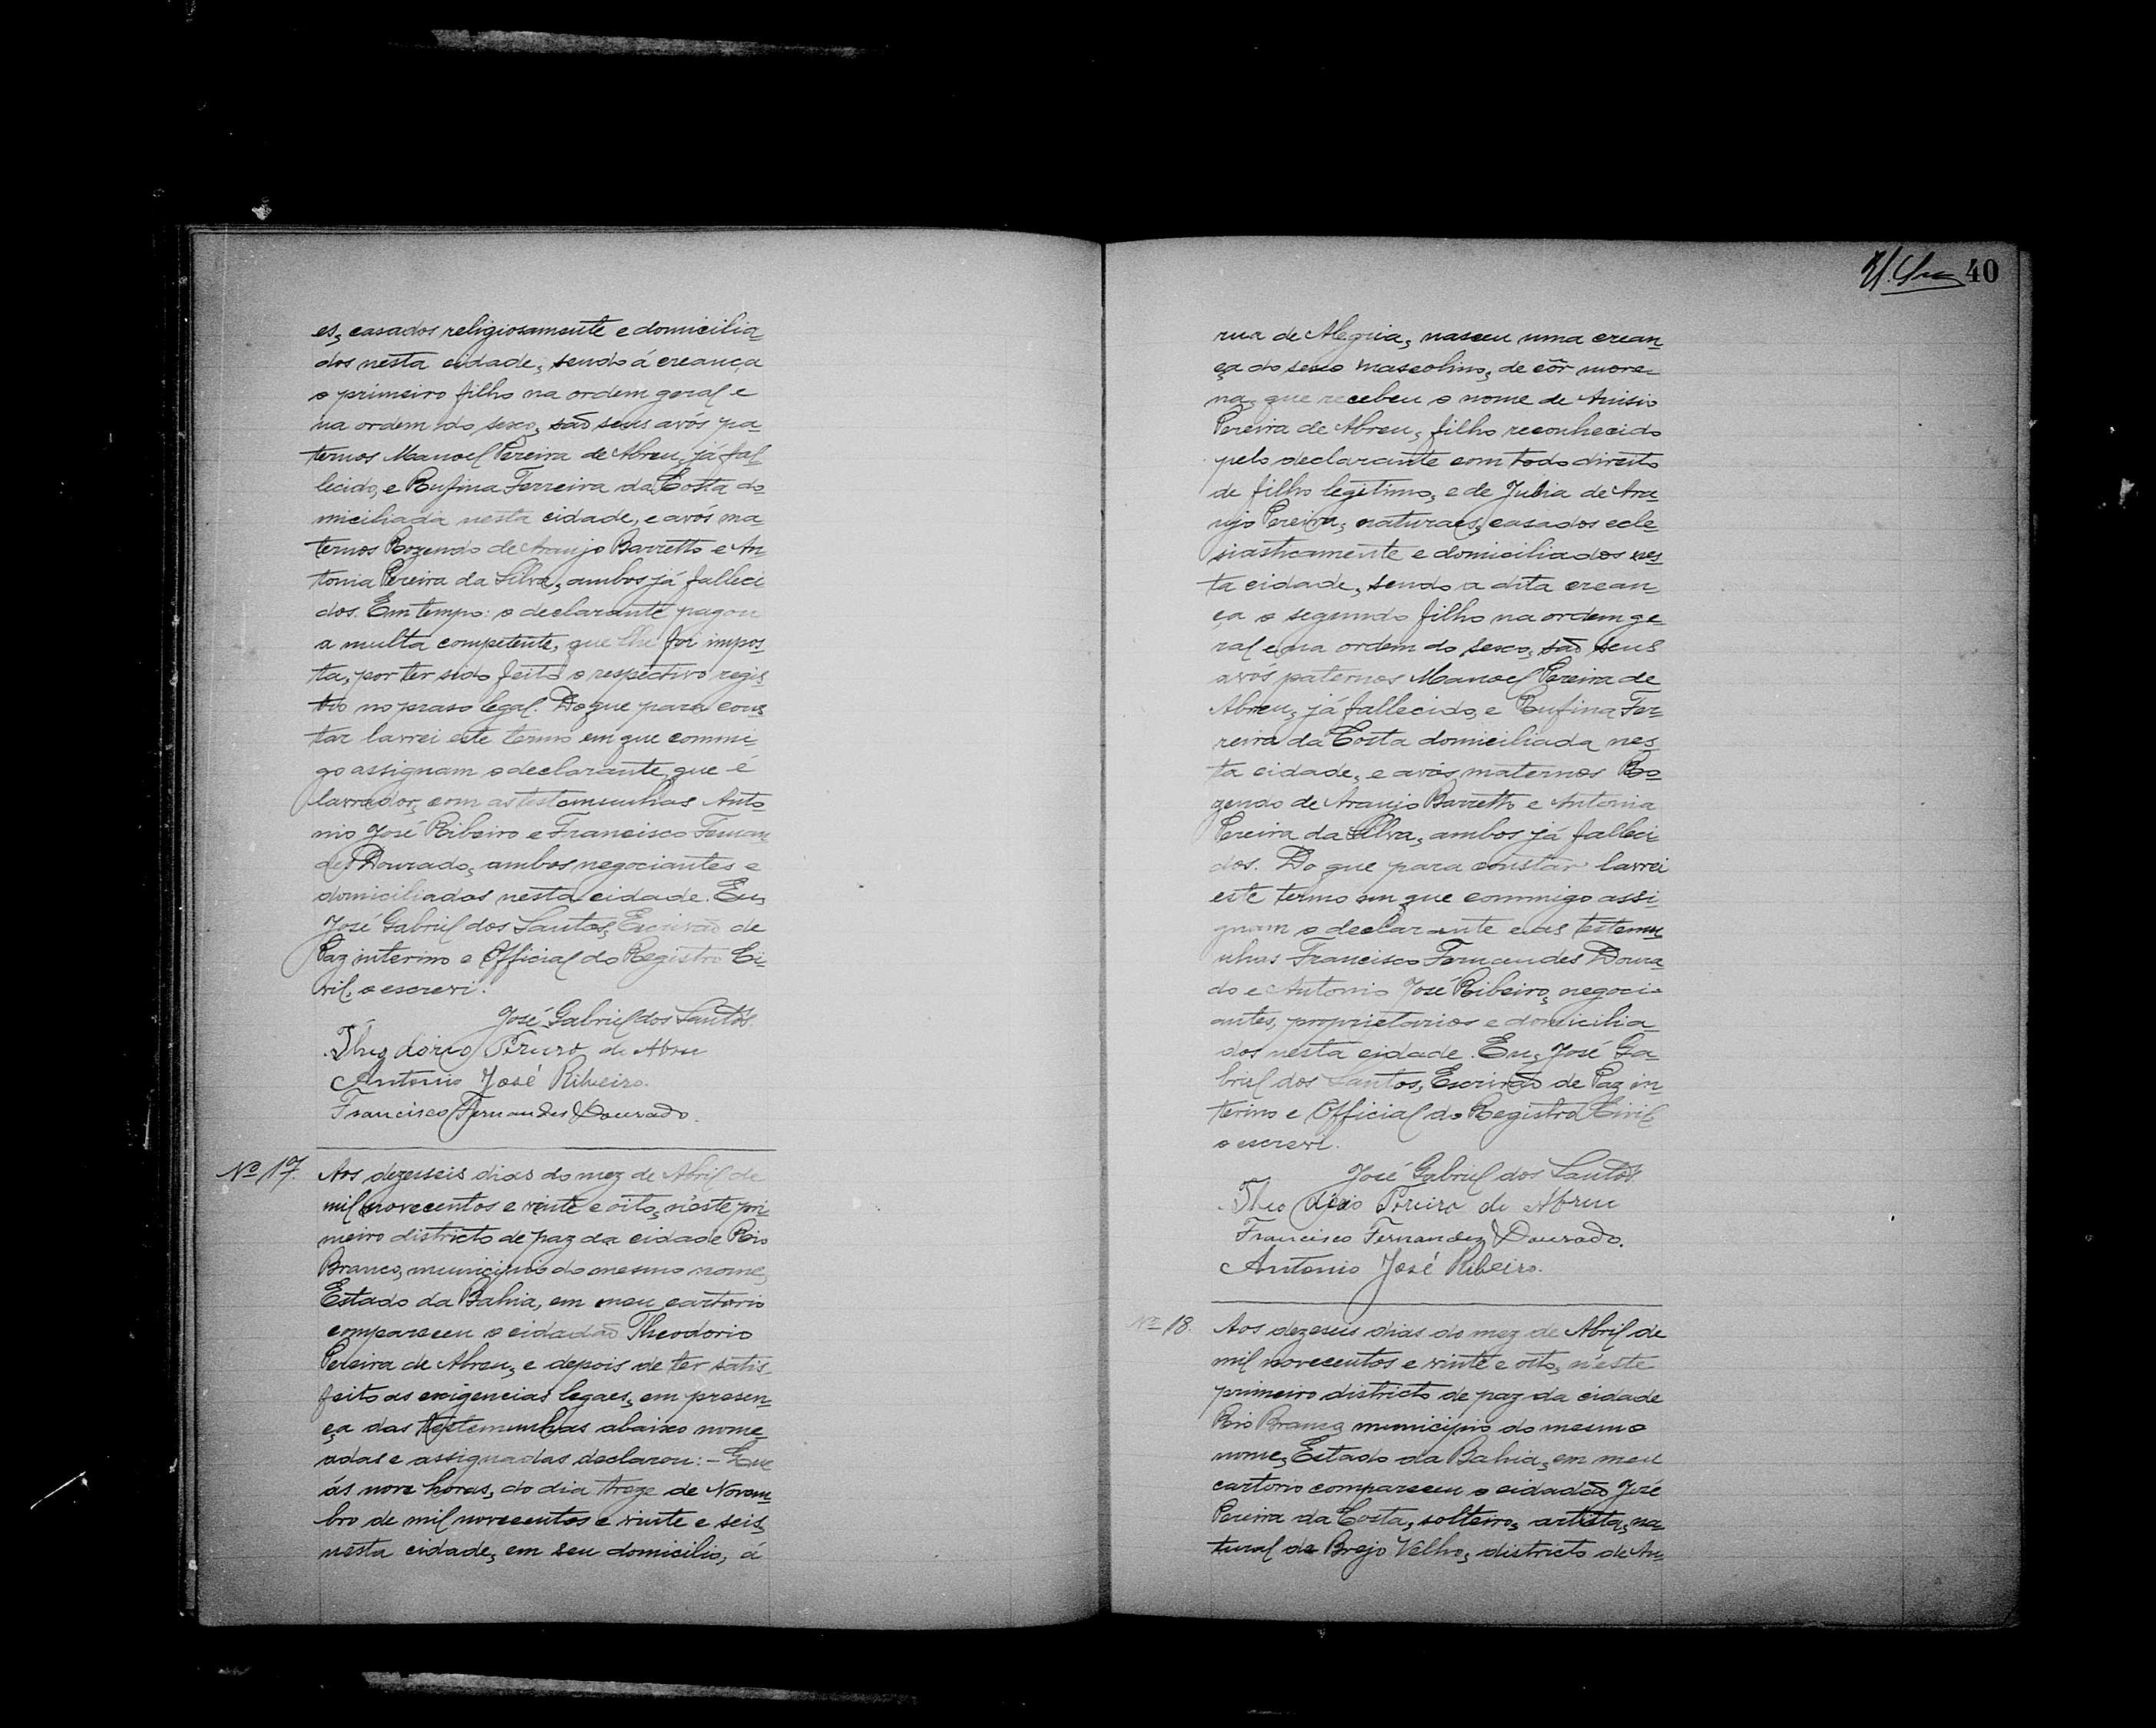 es, casados religiosamente e domicilia-
dos nesta cidade, sendo á creança
o primeiro filho na ordem geral e
na ordem do sexo, são seus avós pa-
ternos Manoel Pereira de Abreu, já fal-
lecido, e Rufina Ferreira da Costa do-
miciliada nesta cidade, e avós ma-
ternos Rozendo de Araujo Barretto e An-
tonia Pereira da Silva, ambos já falleci-
dos. Em tempo: o declarante pagou
a multa competente, que lhe foi impos-
ta, por ter sido feito o respectivo regis-
tro no praso legal. Do que para cons-
tar lavrei este termo em que commi-
go assignam o declarante, que é
lavrador, com as testemunhas Anto-
nio José Ribeiro e Francisco Fernan-
des Dourado, ambos negociantes e
domiciliados nesta cidade. Eu,
José Gabriel dos Santos, Escrivão de
Paz interino e Official do Registro Ci-
vil, o escrevi.
José Gabriel dos Santos.
Theodorio Pereira de Abreu
Antonio José Ribeiro.
Francisco Fernandes Dourado.
Nº 17. Aos dezesseis dias do mez de Abril de
mil novecentos e vinte e oito, n'este pri-
meiro districto de paz da cidade Rio
Branco, municipio do mesmo nome,
Estado da Bahia, em meu cartorio
compareceu o cidadão Theodorio
Pereira de Abreu, e depois de ter satis-
feito as exigencias legaes, em presen-
ça das testemunhas abaixo nome-
adas e assignadas declarou: - Que
ás nove horas, do dia treze de Novem-
bro de mil novecentos e vinte e seis,
nesta cidade, em seu domicilio, á
40
rua de Alegria, nasceu uma crean-
ça do sexo mascolino, de côr more-
na, que recebeu o nome de Anisio
Pereira de Abreu, filho reconhecido
pelo declarante com todo direito
de filho legitimo, e de Julia de Ara-
ujo Pereira, naturaes, casados ecle-
siasticamente e domiciliados nes-
ta cidade, sendo a dita crean-
ça o segundo filho na ordem ge-
ral e na ordem do sexo, são seus
avós paternos Manoel Pereira de
Abreu, já fallecido, e Rufina Fer-
reira da Costa domiciliada nes-
ta cidade, e avós maternos Ro-
zendo de Araujo Barretto e Antonia
Pereira da Silva, ambos já falleci-
dos. Do que para constar lavrei
este termo em que commigo assi-
gnam o declarante e as testemu-
nhas Francisco Fernandes Doura-
do e Antonio José Ribeiro, negoci-
antes, proprietarios e domicilia-
dos nesta cidade. Eu, José Ga-
briel dos Santos, Escrivão de Paz in-
terino e Official do Registro Civil
o escrevi.
José Gabriel dos Santos.
Theodorio Pereira de Abreu
Francisco Fernandez Dourado.
Antonio José Ribeiro.
Nº 18. Aos dezeseis dias do mez de Abril de
mil novecentos e vinte e oito, n'este
primeiro districto de paz da cidade
Rio Branco municipio do mesmo
nome, Estado da Bahia, em meu
cartorio compareceu o cidadão José
Pereira da Costa, solteiro, artista, na-
tural de Brejo Velho, districto de An-